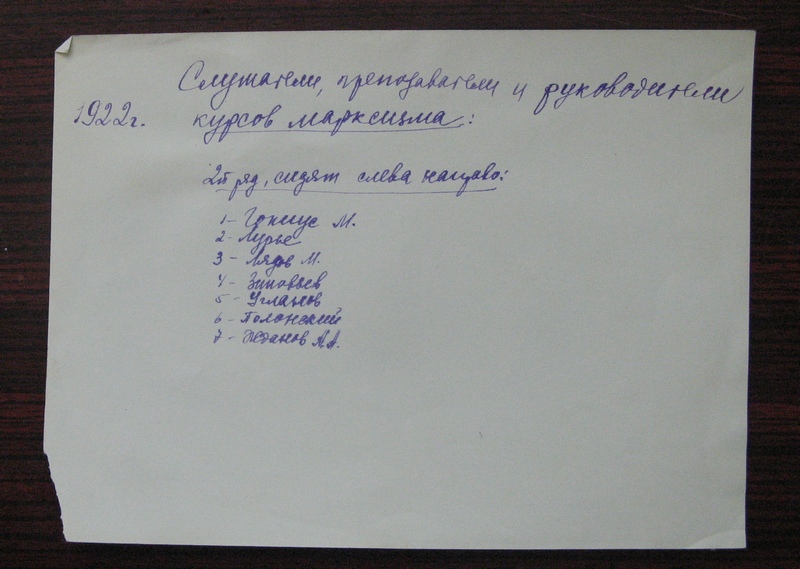 Слушатели, преподаватели и руководители
1922г. курсов марксизма:
2й ряд, сидят слева направо:
1 - Гониус М.
2 - Лурье
3 - Лядов М.
4 - Зиновьев
5 - Угланов
6 - Полонский
7 - Жданов А.А.